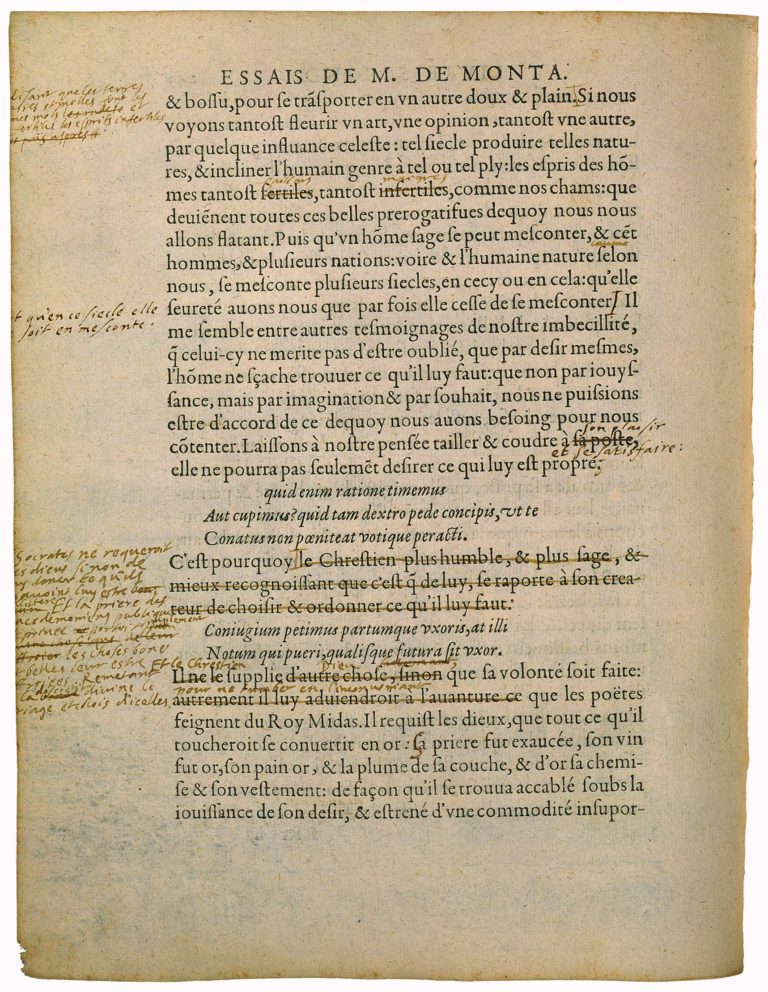 ESSAIS DE M. DE MONTA.
& bossu, pour se trãsporter en vn autre doux & plain. Si nous
voyons tantost fleurir vn art, vne opinion, tantost vne autre,
par quelque influance celeste : tel siecle produire telles natu-
res, & incliner l'humain genre à tel ou tel ply: les espris des hõ-
mes tantost fertiles, tantost infertiles, comme nos chams: que
deuiẽnent toutes ces belles prerogatifues dequoy nous nous
allons flatant. Puis qu'vn hõme sage se peut mesconter, & cẽt
hommes, & plusieurs nations: voire & l'humaine nature selon
nous, se mesconte plusieurs siecles, en cecy ou en cela: qu'elle
seureté auons nous que par fois elle cesse de se mesconter Il
t qu'en ce siecle elle
soit en mesconte:
me semble entre autres tesmoignages de nostre imbecillité,
q̃ celui-cy ne merite pas d'estre oublié, que par desir mesmes,
l'hõme ne sçache trouuer ce qu'il luy faut: que non par iouys-
sance, mais par imagination & par souhait, nous ne puissions
estre d'accord de ce dequoy nous auons besoing pour nous
cõtenter. Laissons à nostre pensée tailler & coudre à sa poste,
son plaisir
et se satisfaire:
elle ne pourra pas seulemẽt desirer ce qui luy est propre:
quid enim ratione timemus
Aut cupimus? quid tam dextro pede concipis, vt te
Conatus non pœniteat votique peracti.
C'est pourquoy le Chrestien plus humble, & plus sage, &
mieux recognoissant que c'est q̃ de luy, se raporte à son crea-
teur de choisir & ordonner ce qu'il luy faut.
Socrates ne requeroit
les dieus sinon de
Et la priere des
publique
les choses bone
belles leur estre Et le Chrestien
divine le
pour ne tomber en
et chois d'icelles
Coniugium petimus partumque vxoris, at illi
Notum qui pueri, qualisque futura sit vxor.
Il ne le supplie d'autre chose, sinon que sa volonté soit faite:
autrement il luy aduiendroit à l'auanture ce que les poëtes
feignent du Roy Midas. Il requist les dieux, que tout ce qu'il
toucheroit se conuertit en or : sa priere fut exaucée, son vin
fut or, son pain or, & la plume de sa couche, & d'or sa chemi-
se & son vestement: de façon qu'il se trouua accablé soubs la
iouissance de son desir, & estrené d'vne commodité insupor-